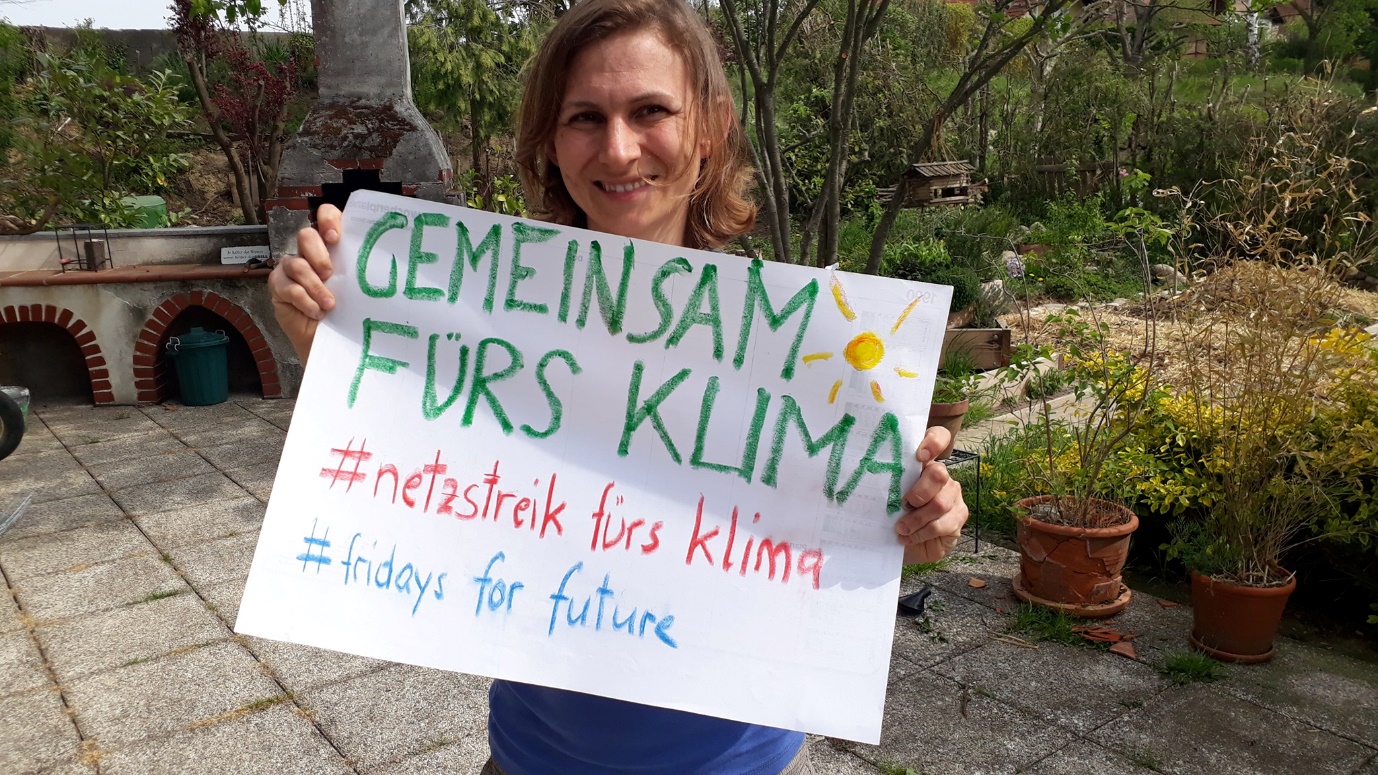 GEMEINSAM
FÜRS KLIMA
#netzstreik fürs klima
#fridays for future